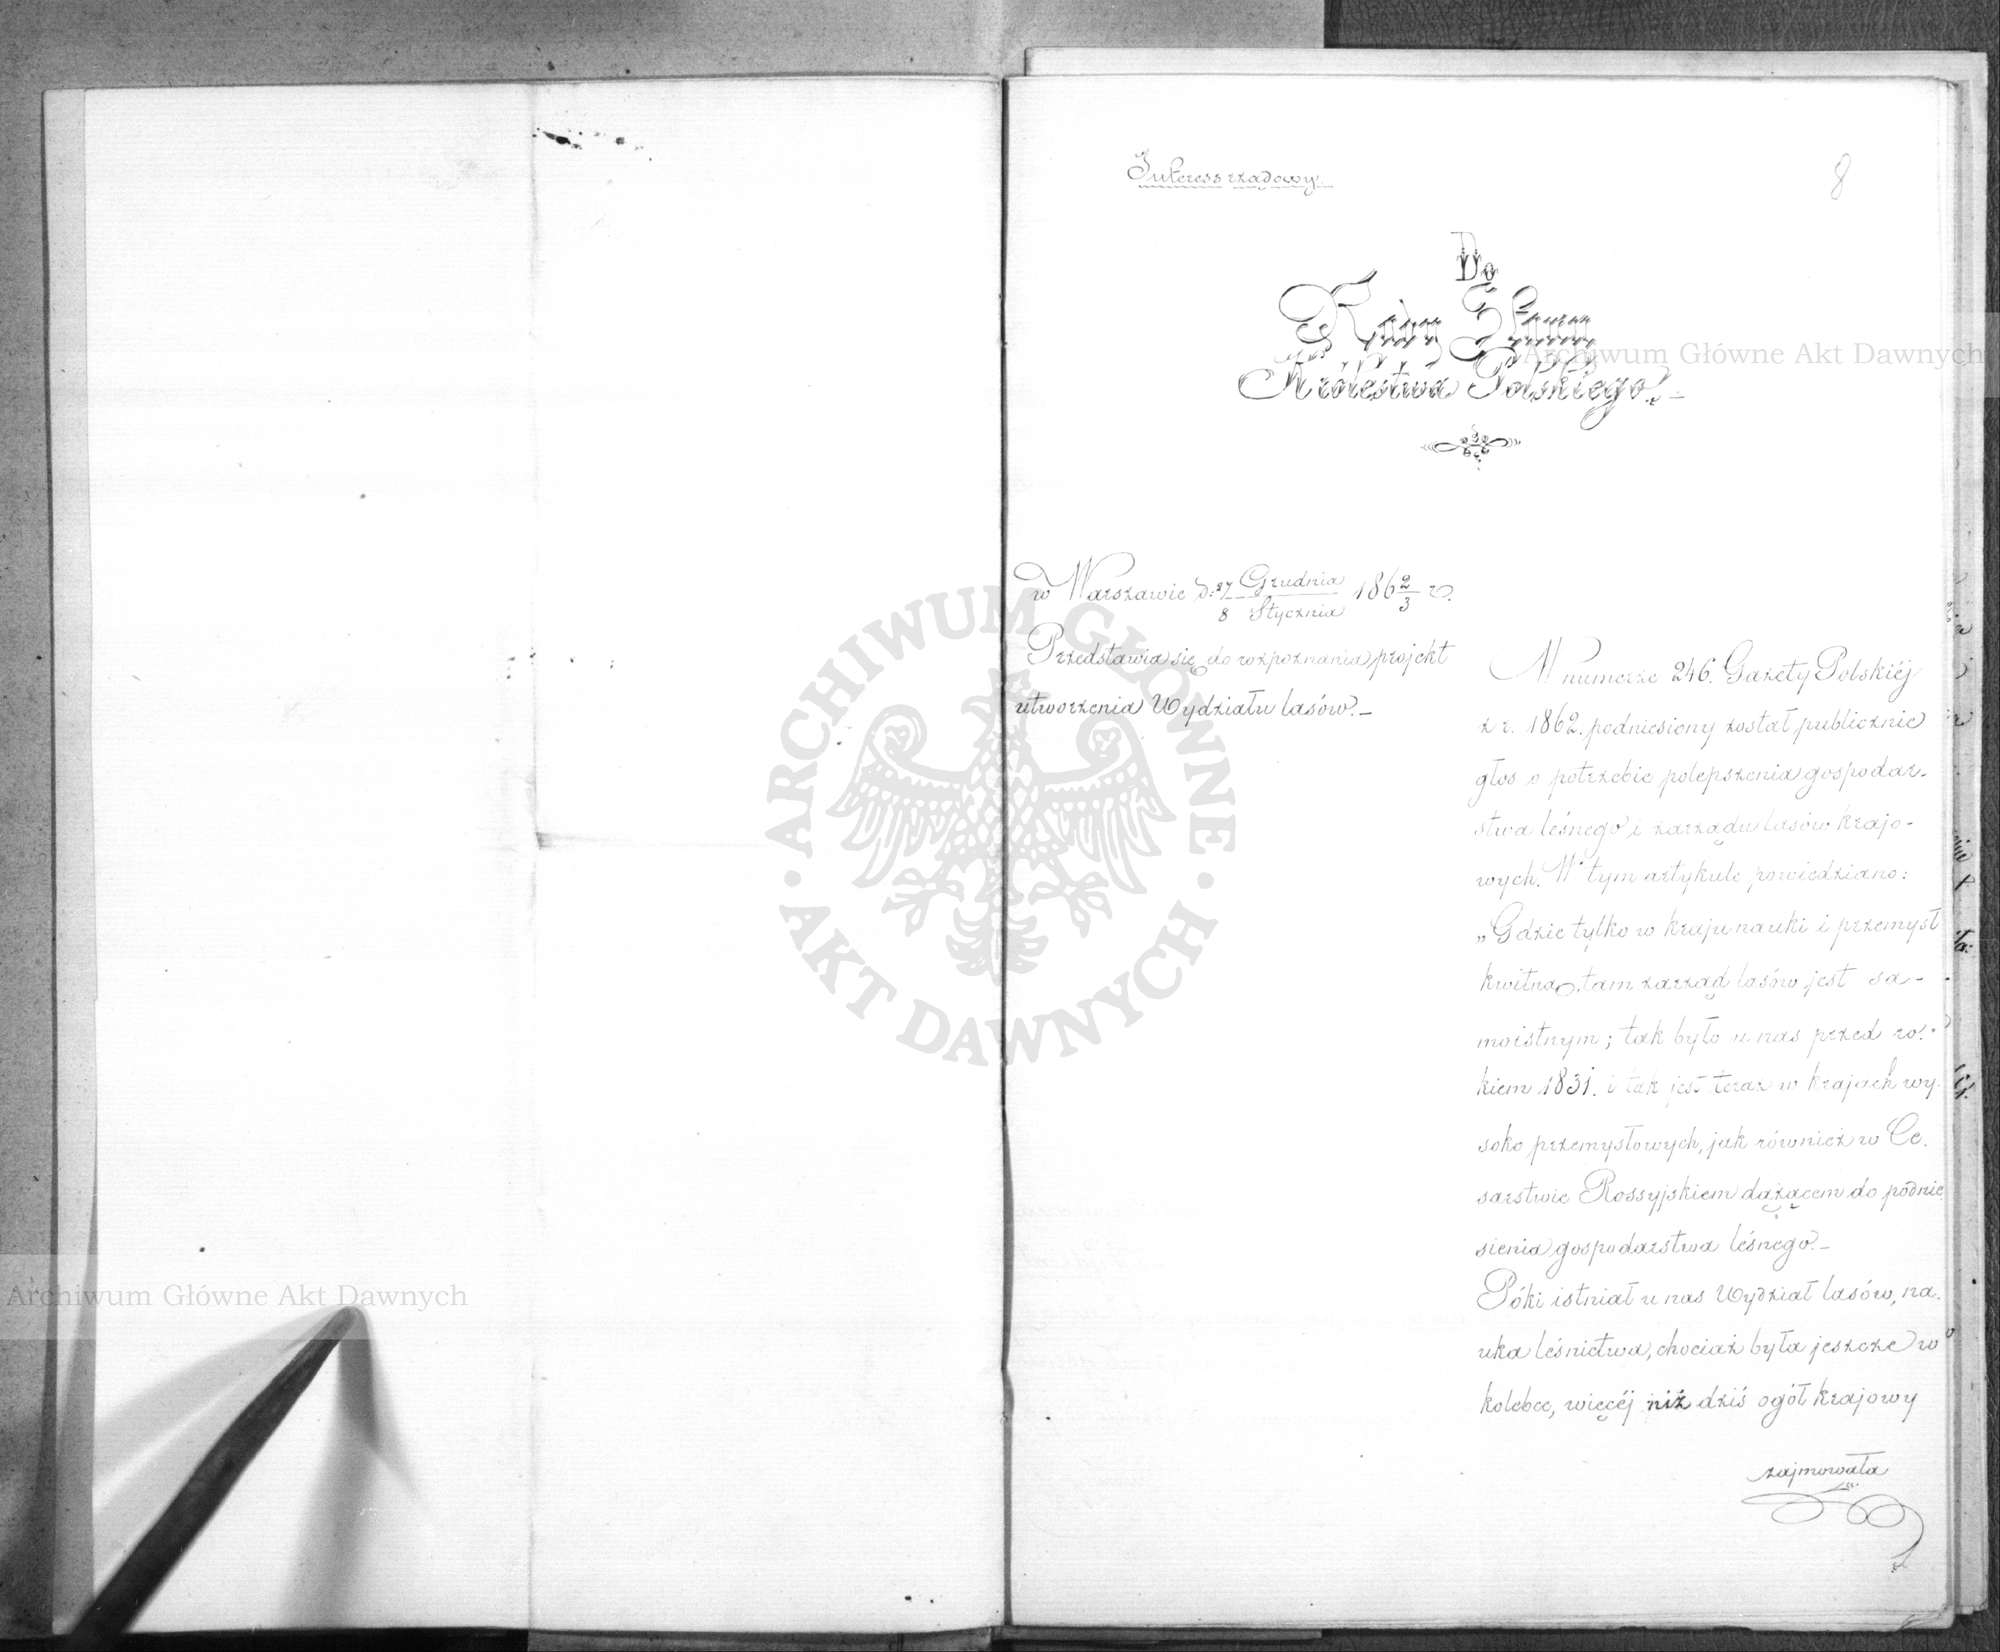 Interess rządowy.
8
Do
Rady Stanu
Królestwa Polskiego.
w Warszawie d: 27 Grudnia / 8 Stycznia 186 2/3 r.
Przedstawia się do rozpoznania projekt
utworzenia Wydziału lasów.–
W numerze 246. Gazety Polskiéj
z r. 1862. podniesiony został publicznie
głos o potrzebie polepszenia gospodar-
stwa leśnego i zarządu lasów krajo-
wych. W tym artykule powiedziano:
„Gdzie tylko w kraju nauki i przemysł
kwitną, tam zarząd lasów jest sa-
moistnym; tak było u nas przed ro-
kiem 1831. i tak jest teraz w krajach wy-
soko przemysłowych, jak również w Ce-
sarstwie Rossyjskiem dążącem do podnie
sienia gospodarstwa leśnego.–
Póki istniał u nas Wydział lasów, na-
uka leśnictwa, chociaż była jeszcze w
kolebce, więcéj niż dziś ogół krajowy
zajmowała
Archiwum Główne Akt Dawnych
Archiwum Główne Akt Dawnych
ARCHIWUM GŁÓWNE
AKT DAWNYCH